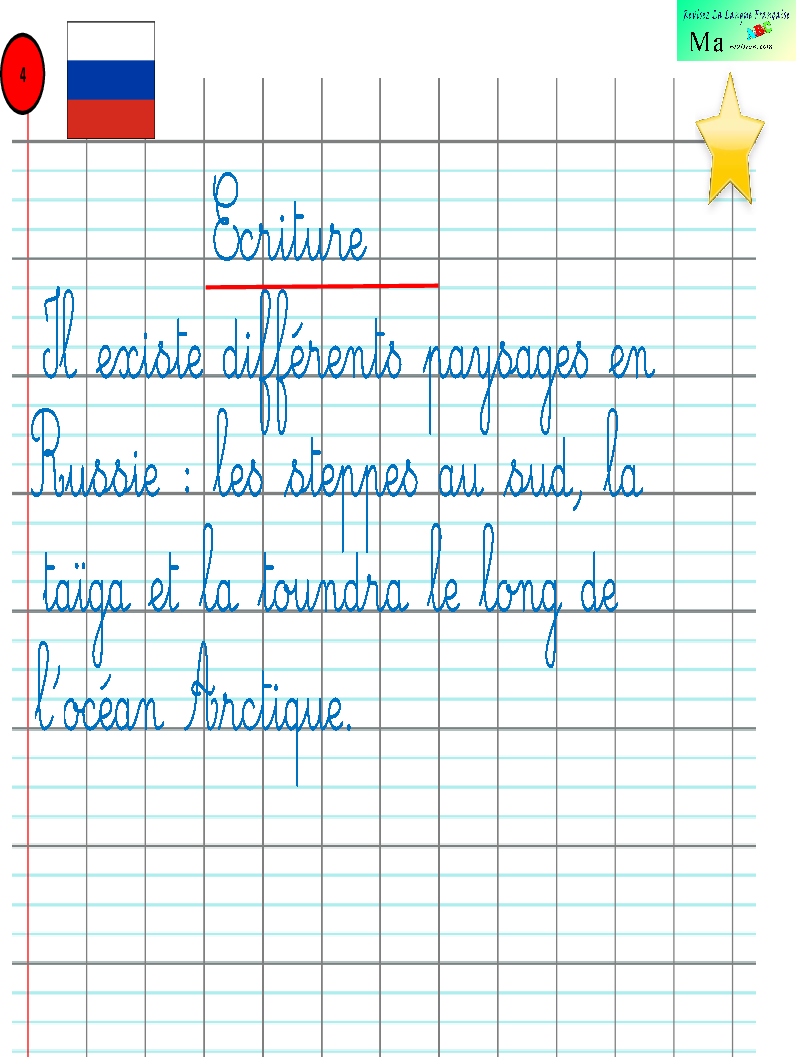 Revisez La Langue Française
4
Ma
revision.com
Ecriture
Il existe différents paysages en
Russie : les steppes au sud, la
taïga et la toundra le long de
l'océan Arctique.